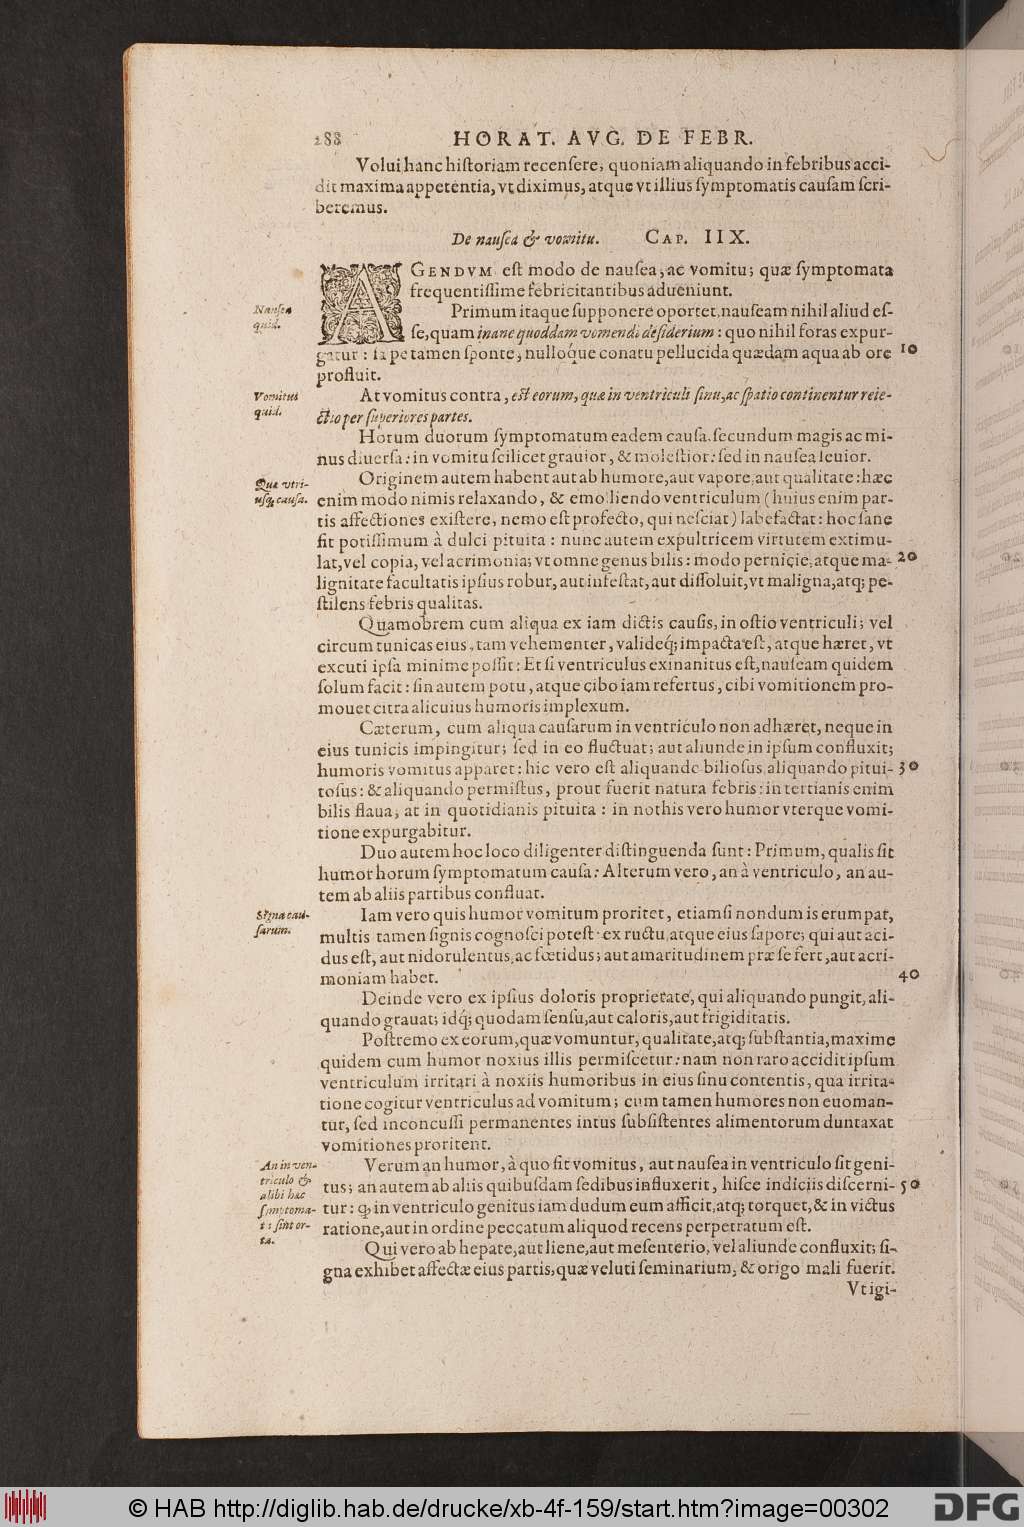 288 HORAT. AVG. DE FEBR.
Volui hanc hiſtoriam recenſere, quoniam aliquando in febribus acci-
dit maxima appetentia, vt diximus, atque vt illius ſymptomatis cauſam ſcri-
beremus.
De nauſea & vomitu. CAP. IIX.
AGENDVM eſt modo de nauſea, ac vomitu; quæ ſymptomata
frequentiſſime febricitantibus adueniunt.
Nauſea
quid.
Primum itaque ſupponere oportet, nauſeam nihil aliud eſ-
ſe, quam inane quoddam vomendi deſiderium: quo nihil foras expur-
gatur: ſæpe tamen ſponte, nulloq́ue conatu pellucida quædam aqua ab ore 10
profluit.
Vomitus
quid.
At vomitus contra, eſt eorum, quæ in ventriculi ſinu, ac ſpatio continentur reie-
ctio per ſuperiores partes.
Horum duorum ſymptomatum eadem cauſa, ſecundum magis ac mi-
nus diuerſa: in vomitu ſcilicet grauior, & moleſtior: ſed in nauſea leuior.
Quæ vtri-
uſq; cauſa.
Originem autem habent aut ab humore, aut vapore, aut qualitate: hæc
enim modo nimis relaxando, & emolliendo ventriculum (huius enim par-
tis affectiones exiſtere, nemo eſt profecto, qui neſciat) labefactat: hoc ſane
fit potiſſimum à dulci pituita: nunc autem expultricem virtutem extimu-
lat, vel copia, vel acrimonia; vt omne genus bilis: modo pernicie, atque ma- 20
lignitate facultatis ipſius robur, aut infeſtat, aut diſſoluit, vt maligna, atq; pe-
ſtilens febris qualitas.
Quamobrem cum aliqua ex iam dictis cauſis, in oſtio ventriculi; vel
circum tunicas eius, tam vehementer, valideq́; impacta eſt, atque hæret, vt
excuti ipſa minime poſſit: Et ſi ventriculus exinanitus eſt, nauſeam quidem
ſolum facit: ſin autem potu, atque cibo iam refertus, cibi vomitionem pro-
mouet citra alicuius humoris implexum.
Cæterum, cum aliqua cauſarum in ventriculo non adhæret, neque in
eius tunicis impingitur; ſed in eo fluctuat; aut aliunde in ipſum confluxit;
humoris vomitus apparet: hic vero eſt aliquando bilioſus, aliquando pitui- 30
toſus: & aliquando permiſtus, prout fuerit natura febris: in tertianis enim
bilis flaua, at in quotidianis pituita: in nothis vero humor vterque vomi-
tione expurgabitur.
Duo autem hoc loco diligenter diſtinguenda ſunt: Primum, qualis ſit
humor horum ſymptomatum cauſa: Alterum vero, an à ventriculo, an au-
tem ab aliis partibus confluat.
Signa cau-
ſarum.
Iam vero quis humor vomitum proritet, etiamſi nondum is erumpat,
multis tamen ſignis cognoſci poteſt: ex ructu, atque eius ſapore; qui aut aci-
dus eſt, aut nidorulentus, ac fœtidus; aut amaritudinem præ ſe fert, aut acri-
moniam habet. 40
Deinde vero ex ipſius doloris proprietate, qui aliquando pungit, ali-
quando grauat; idq́; quodam ſenſu, aut caloris, aut frigiditatis.
Poſtremo ex eorum, quæ vomuntur, qualitate, atq; ſubſtantia, maxime
quidem cum humor noxius illis permiſcetur: nam non raro accidit ipſum
ventriculum irritari à noxiis humoribus in eius ſinu contentis, qua irrita-
tione cogitur ventriculus ad vomitum; cum tamen humores non euoman-
tur, ſed inconcuſſi permanentes intus ſubſiſtentes alimentorum duntaxat
vomitiones proritent.
An in ven-
triculo &
alibi hæc
ſymptoma-
ta ſint or-
ta.
Verum an humor, à quo fit vomitus, aut nauſea in ventriculo ſit geni-
tus; an autem ab aliis quibuſdam ſedibus influxerit, hiſce indiciis diſcerni- 50
tur: ꝙ in ventriculo genitus iam dudum eum afficit, atq; torquet, & in victus
ratione, aut in ordine peccatum aliquod recens perpetratum eſt.
Qui vero ab hepate, aut liene, aut meſenterio, vel aliunde confluxit; ſi-
gna exhibet affectæ eius partis, quæ veluti ſeminarium, & origo mali fuerit.
Vt igi-
© HAB http://diglib.hab.de/drucke/xb-4f-159/start.htm?image=00302
DFG